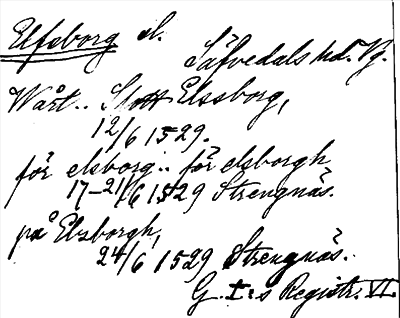 Elfsborg sl.
Säfvedals hd. Vg.
Wårt.. Slott Elssborg,
12/6 1529.
för elsborg.. för elsborgh
17-21/6 1529 Strengnäs.
på Elsborgh,
24/6 1529 Strengnäs.
G. I:s Registr. VI.